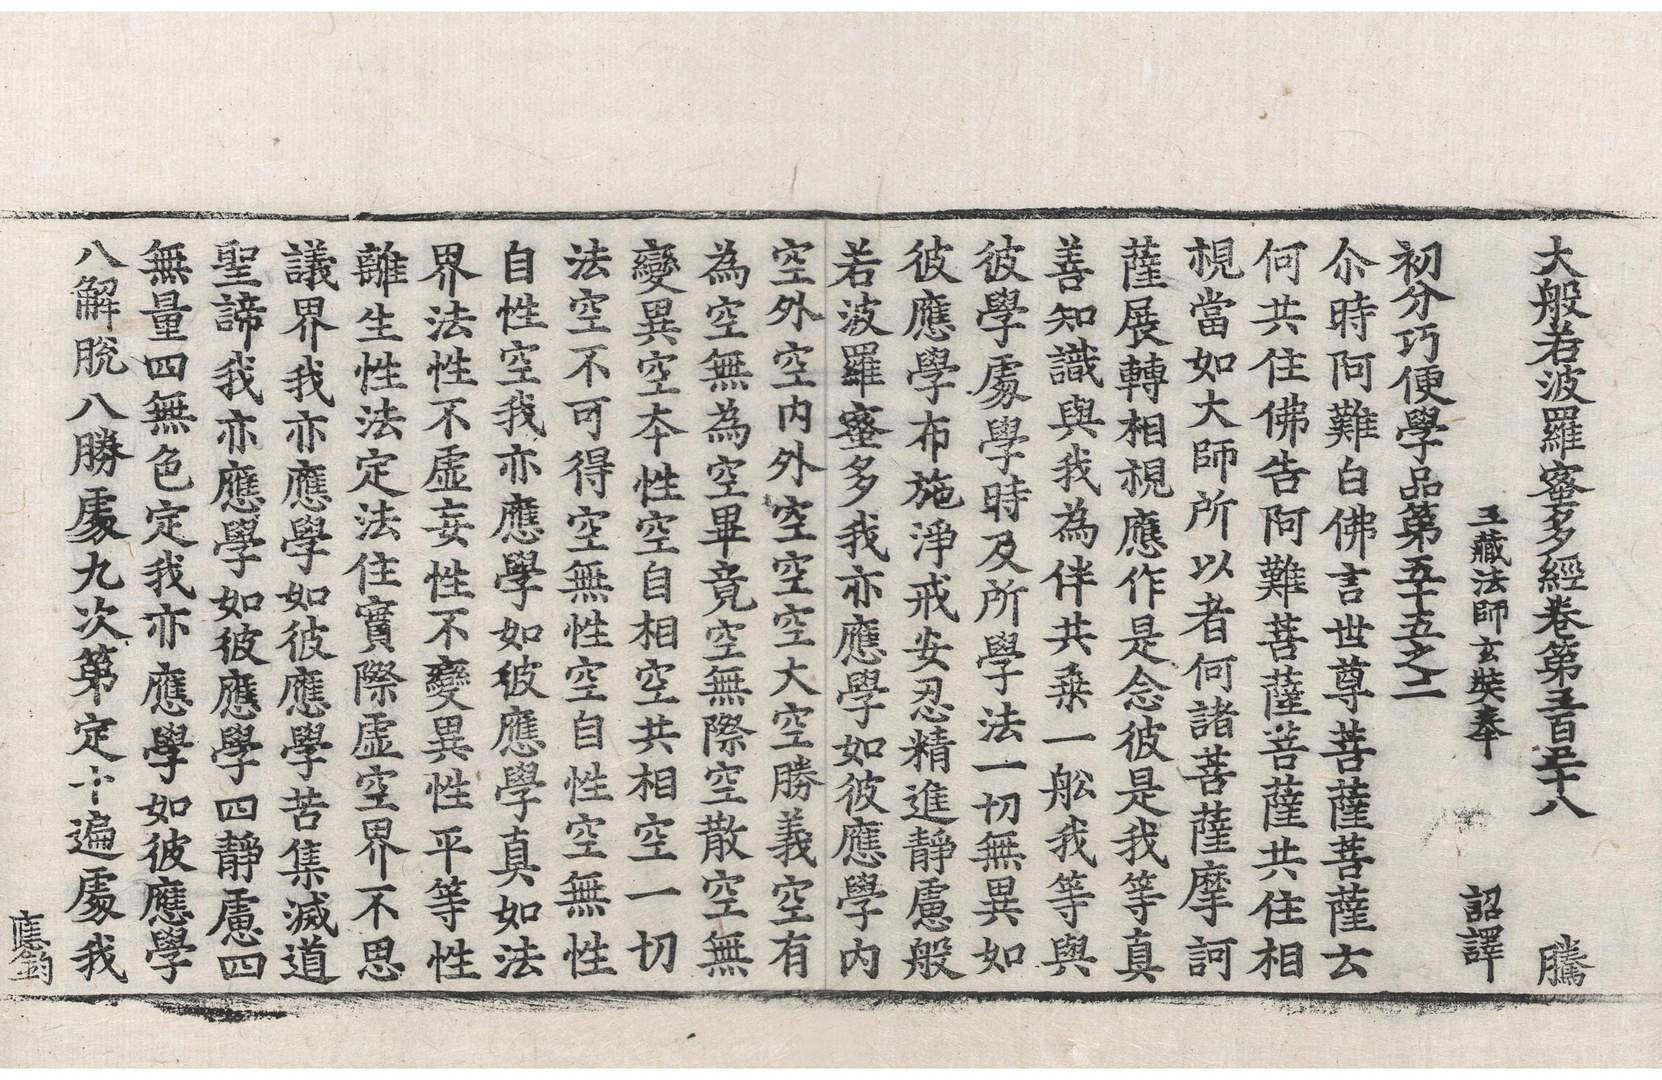 大般若波羅蜜多經卷第三百五十八 騰
三藏法師玄奘奉 詔譯
初分巧便學品第五十五之二
尒時阿難白佛言世尊菩薩菩薩云
何共住佛告阿難菩薩菩薩共住相
視當如大師所以者何諸菩薩摩訶
薩展轉相視應作是念彼是我等真
善知識與我為伴共乗一舩我等與
彼學處學時及所學法一切無異如
彼應學布施淨戒安忍精進靜慮般
若波羅蜜多我亦應學如彼應學內
空外空內外空空空大空勝義空有
為空無為空畢竟空無際空散空無
變異空夲性空自相空共相空一切
法空不可得空無性空自性空無性
自性空我亦應學如彼應學真如法
界法性不虛妄性不變異性平等性
離生性法定法住實際虛空界不思
議界我亦應學如彼應學苦集滅道
聖諦我亦應學如彼應學四靜慮四
無量四無色定我亦應學如彼應學
八解脫八勝處九次第定十遍處我
應鈞